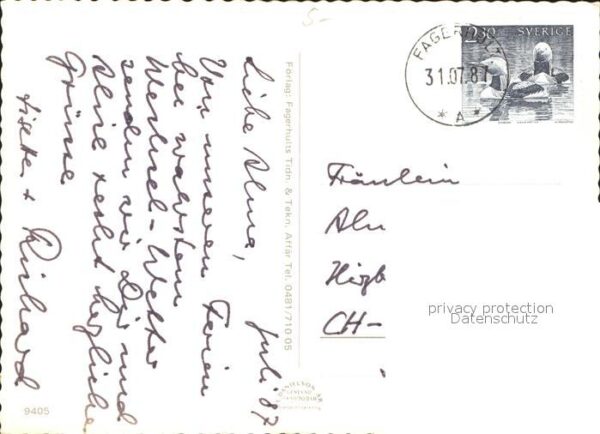 Juli 87
Liebe Alma,
Von unseren Ferien
bei wahrstem
Wechsel-Wetter
senden wir Dir und
recht herzliche
Grüsse
+ Richard
9405
Förlag: Fagerhults Tidn. & Tekn. Affär Tel. 0481/710 05
5-
FAGERHULT
31.07.87
* A *
230
SVERIGE
Fräulein
CH-
privacy protection
Datenschutz